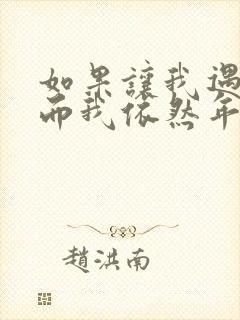 如果讓我遇
而我依然年
趙洪南